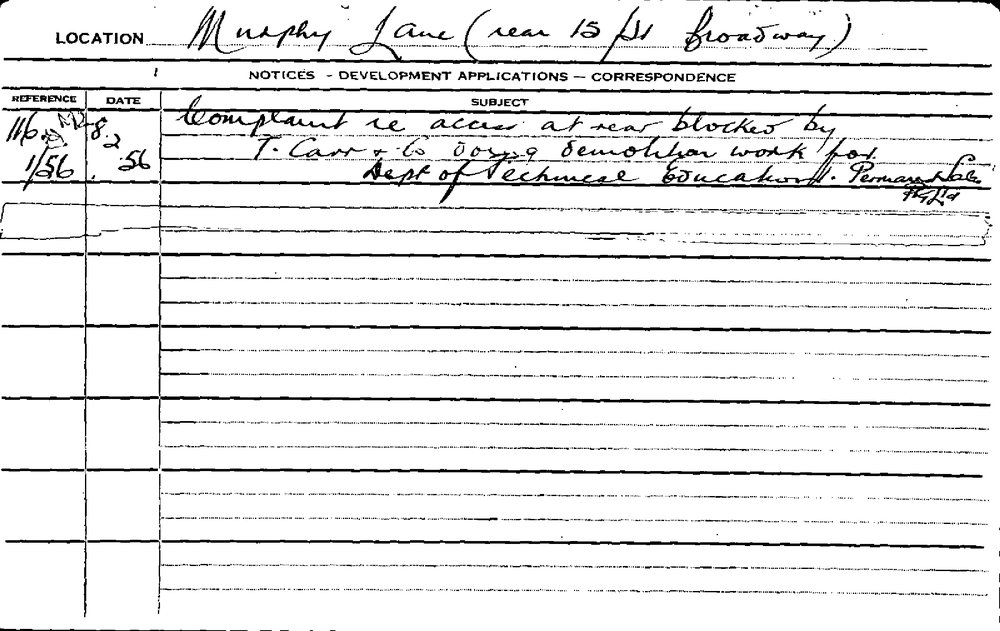 LOCATION Murphy Lane (rear 15 / Broadway)
NOTICES - DEVELOPMENT APPLICATIONS — CORRESPONDENCE
REFERENCE DATE SUBJECT
116 8.2 Complaint re access at rear blocked by
T. Carr & Co doing demolition work for
1/56 .56 Dept of Technical Education.